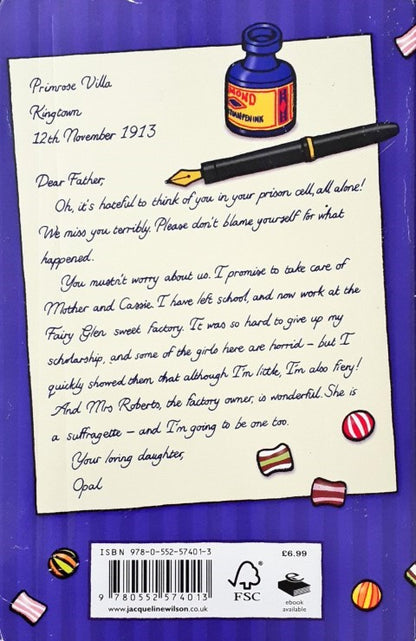 Primrose Villa
Kingtown
12th November 1913
MOND
Dear Father,
Oh, it's hateful to think of you in your prison cell, all alone!
We miss you terribly. Please don't blame yourself for what
happened.
You mustn't worry about us. I promise to take care of
Mother and Cassie. I have left school, and now work at the
Fairy Glen sweet factory. It was so hard to give up my
scholarship, and some of the girls here are horrid – but I
quickly showed them that although I'm little, I'm also fiery!
And Mrs Roberts, the factory owner, is wonderful. She is
a suffragette – and I'm going to be one too.
Your loving daughter,
Opal
ISBN 978-0-552-57401-3
9 780552 574013
www.jacquelinewilson.co.uk
FSC
£6.99
ebook
available